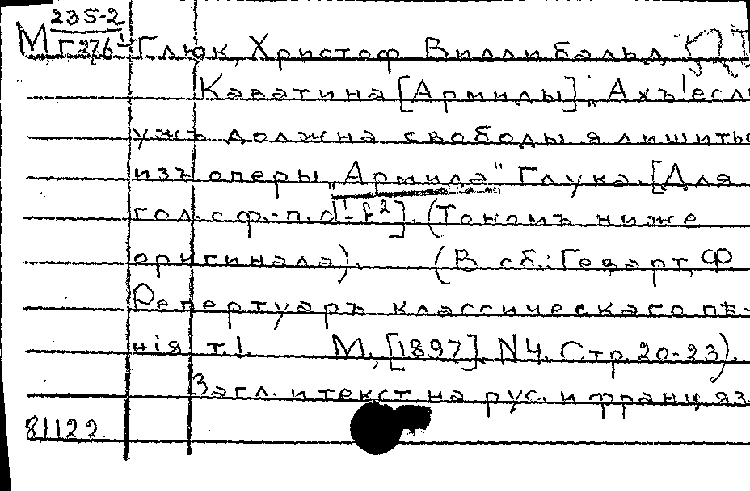 М 235-2
Г276 Глюк, Христоф Виллибальд
Каватина [Армиды] „Ахъ! если
ужъ должна свободы я лишить
изъ оперы „Армида" Глука. [Для
гол. с ф.-п. d¹-f²]. (Тономъ ниже
оригинала). (В сб.: Геварт, Ф
Репертуаръ классическаго пѣ-
нія т. 1. М., [1897]. N4. Стр. 20-23).
Загл. и текст на рус. и франц яз
81122